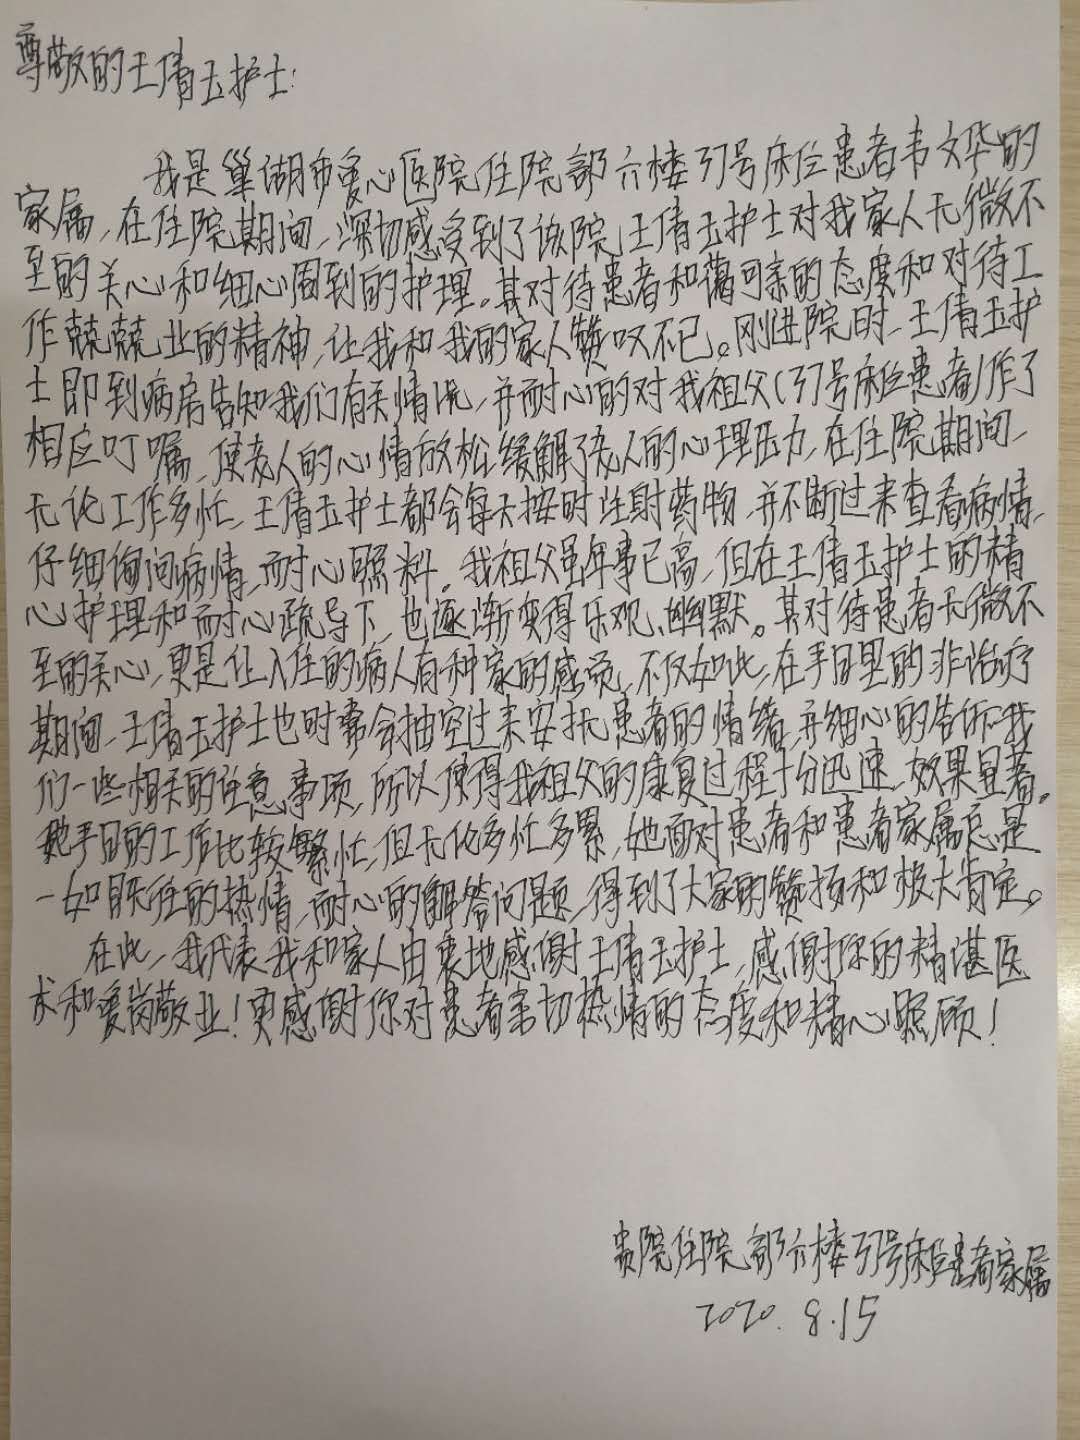 尊敬的王倩玉护士:
我是巢湖市爱心医院住院部六楼37号床位患者韦文华的
家属,在住院期间,深切感受到了该院王倩玉护士对我家人无微不
至的关心和细心周到的护理。其对待患者和蔼可亲的态度和对待工
作兢兢业的精神,让我和我的家人赞叹不已。刚进院时,王倩玉护
士即到病房告知我们有关情况,并耐心的对我祖父(37号床位患者)作了
相应叮嘱,使老人的心情放松缓解了老人的心理压力,在住院期间,
无论工作多忙,王倩玉护士都会每天按时注射药物,并不断过来查看病情,
仔细询问病情,耐心照料。我祖父虽年事已高,但在王倩玉护士的精
心护理和耐心疏导下,也逐渐变得乐观、幽默。其对待患者无微不
至的关心,更是让入住的病人有种家的感觉,不仅如此,在平日里的非治疗
期间,王倩玉护士也时常会抽空过来安抚患者的情绪,并细心的告诉我
们一些相关的注意事项,所以使得我祖父的康复过程十分迅速,效果显著。
她平日的工作比较繁忙,但无论多忙多累,她面对患者和患者家属总是
一如既往的热情,耐心的解答问题,得到了大家的赞扬和极大肯定。
在此,我代表我和家人由衷地感谢王倩玉护士,感谢你的精湛医
术和爱岗敬业!更感谢你对患者亲切热情的态度和精心照顾!
贵院住院部六楼37号床位患者家属
2020.8.15